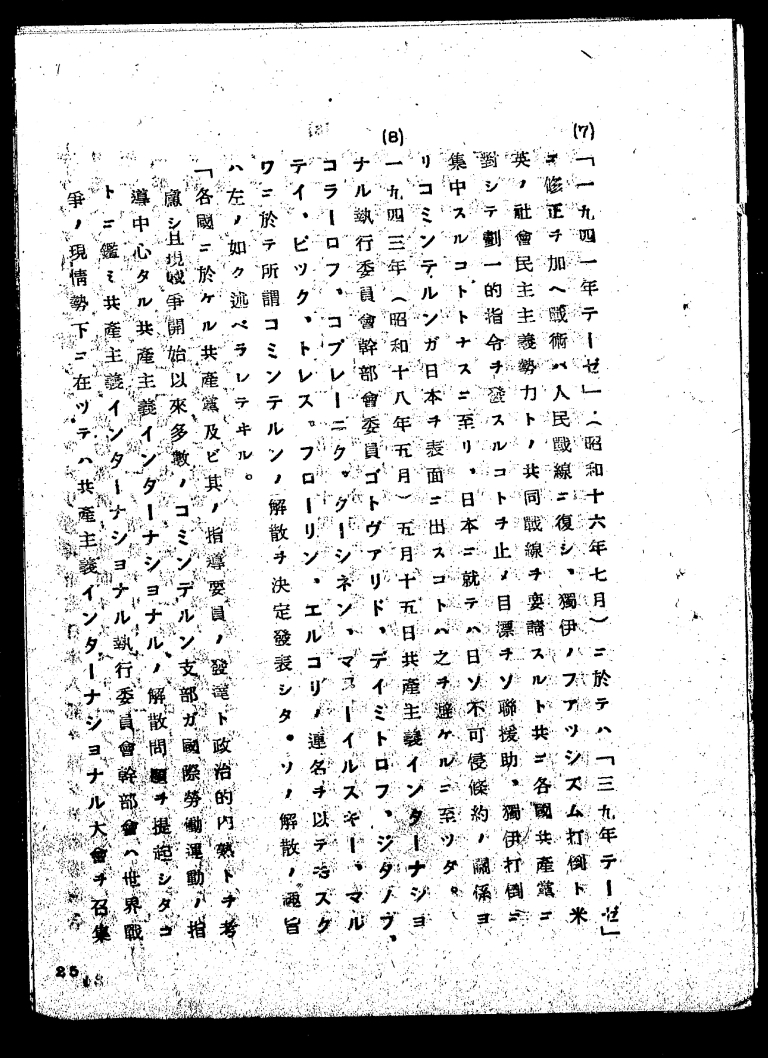 (7)
「一九四一年テーゼ」(昭和十六年七月)ニ於テハ「三九年テーゼ」
ニ修正チ加ヘ戰術ハ人民戰線ニ復シ、獨伊ノフアツシズム打倒ト米
英ノ社會民主主義勢力トノ共同戰線チ要請スルト共ニ各國共產黨ニ
對シテ劃一的指令チ發スルコトチ止メ目漂チソ聯援助、獨伊打倒ニ
集中スルコトトナスニ至リ、日本ニ就テハ日ソ不可侵條約ノ關係ヨ
リコミンテルンガ日本チ表面ニ出スコトハ之チ避ケルニ至ツタ。
(8)
一九四三年(昭和十八年五月)五月十五日共產主義インターナショ
ナル執行委員會幹部會委員ゴトヴアリド、デイミトロフ、ジタノヴ、
コラーロフ、コプレーニク。クーシネン、マヌーイルスキー、マル
テイ、ピツク、トレス。フローリン、エルコリノ連名チ以テモスク
ワニ於テ所謂コミンテルンノ解散チ決定發表シタ。ソノ解散ノ趣旨
ハ左ノ如ク述ベラレテキル。
「各國ニ於ケル共產黨及ビ其ノ指導要員ノ發達ト政治的內熟トチ考
慮シ且現戰爭開始以來多數ノコミンテルン支部ガ國際勞働運動ノ指
導中心タル共產主義インターナショナルノ解散問題チ提起シタコ
トニ鑑ミ共產主義インターナショナル執行委員會幹部會ハ世界戰
爭ノ現情勢下ニ在ツテハ共產主義インターナショナル大會チ召集
25